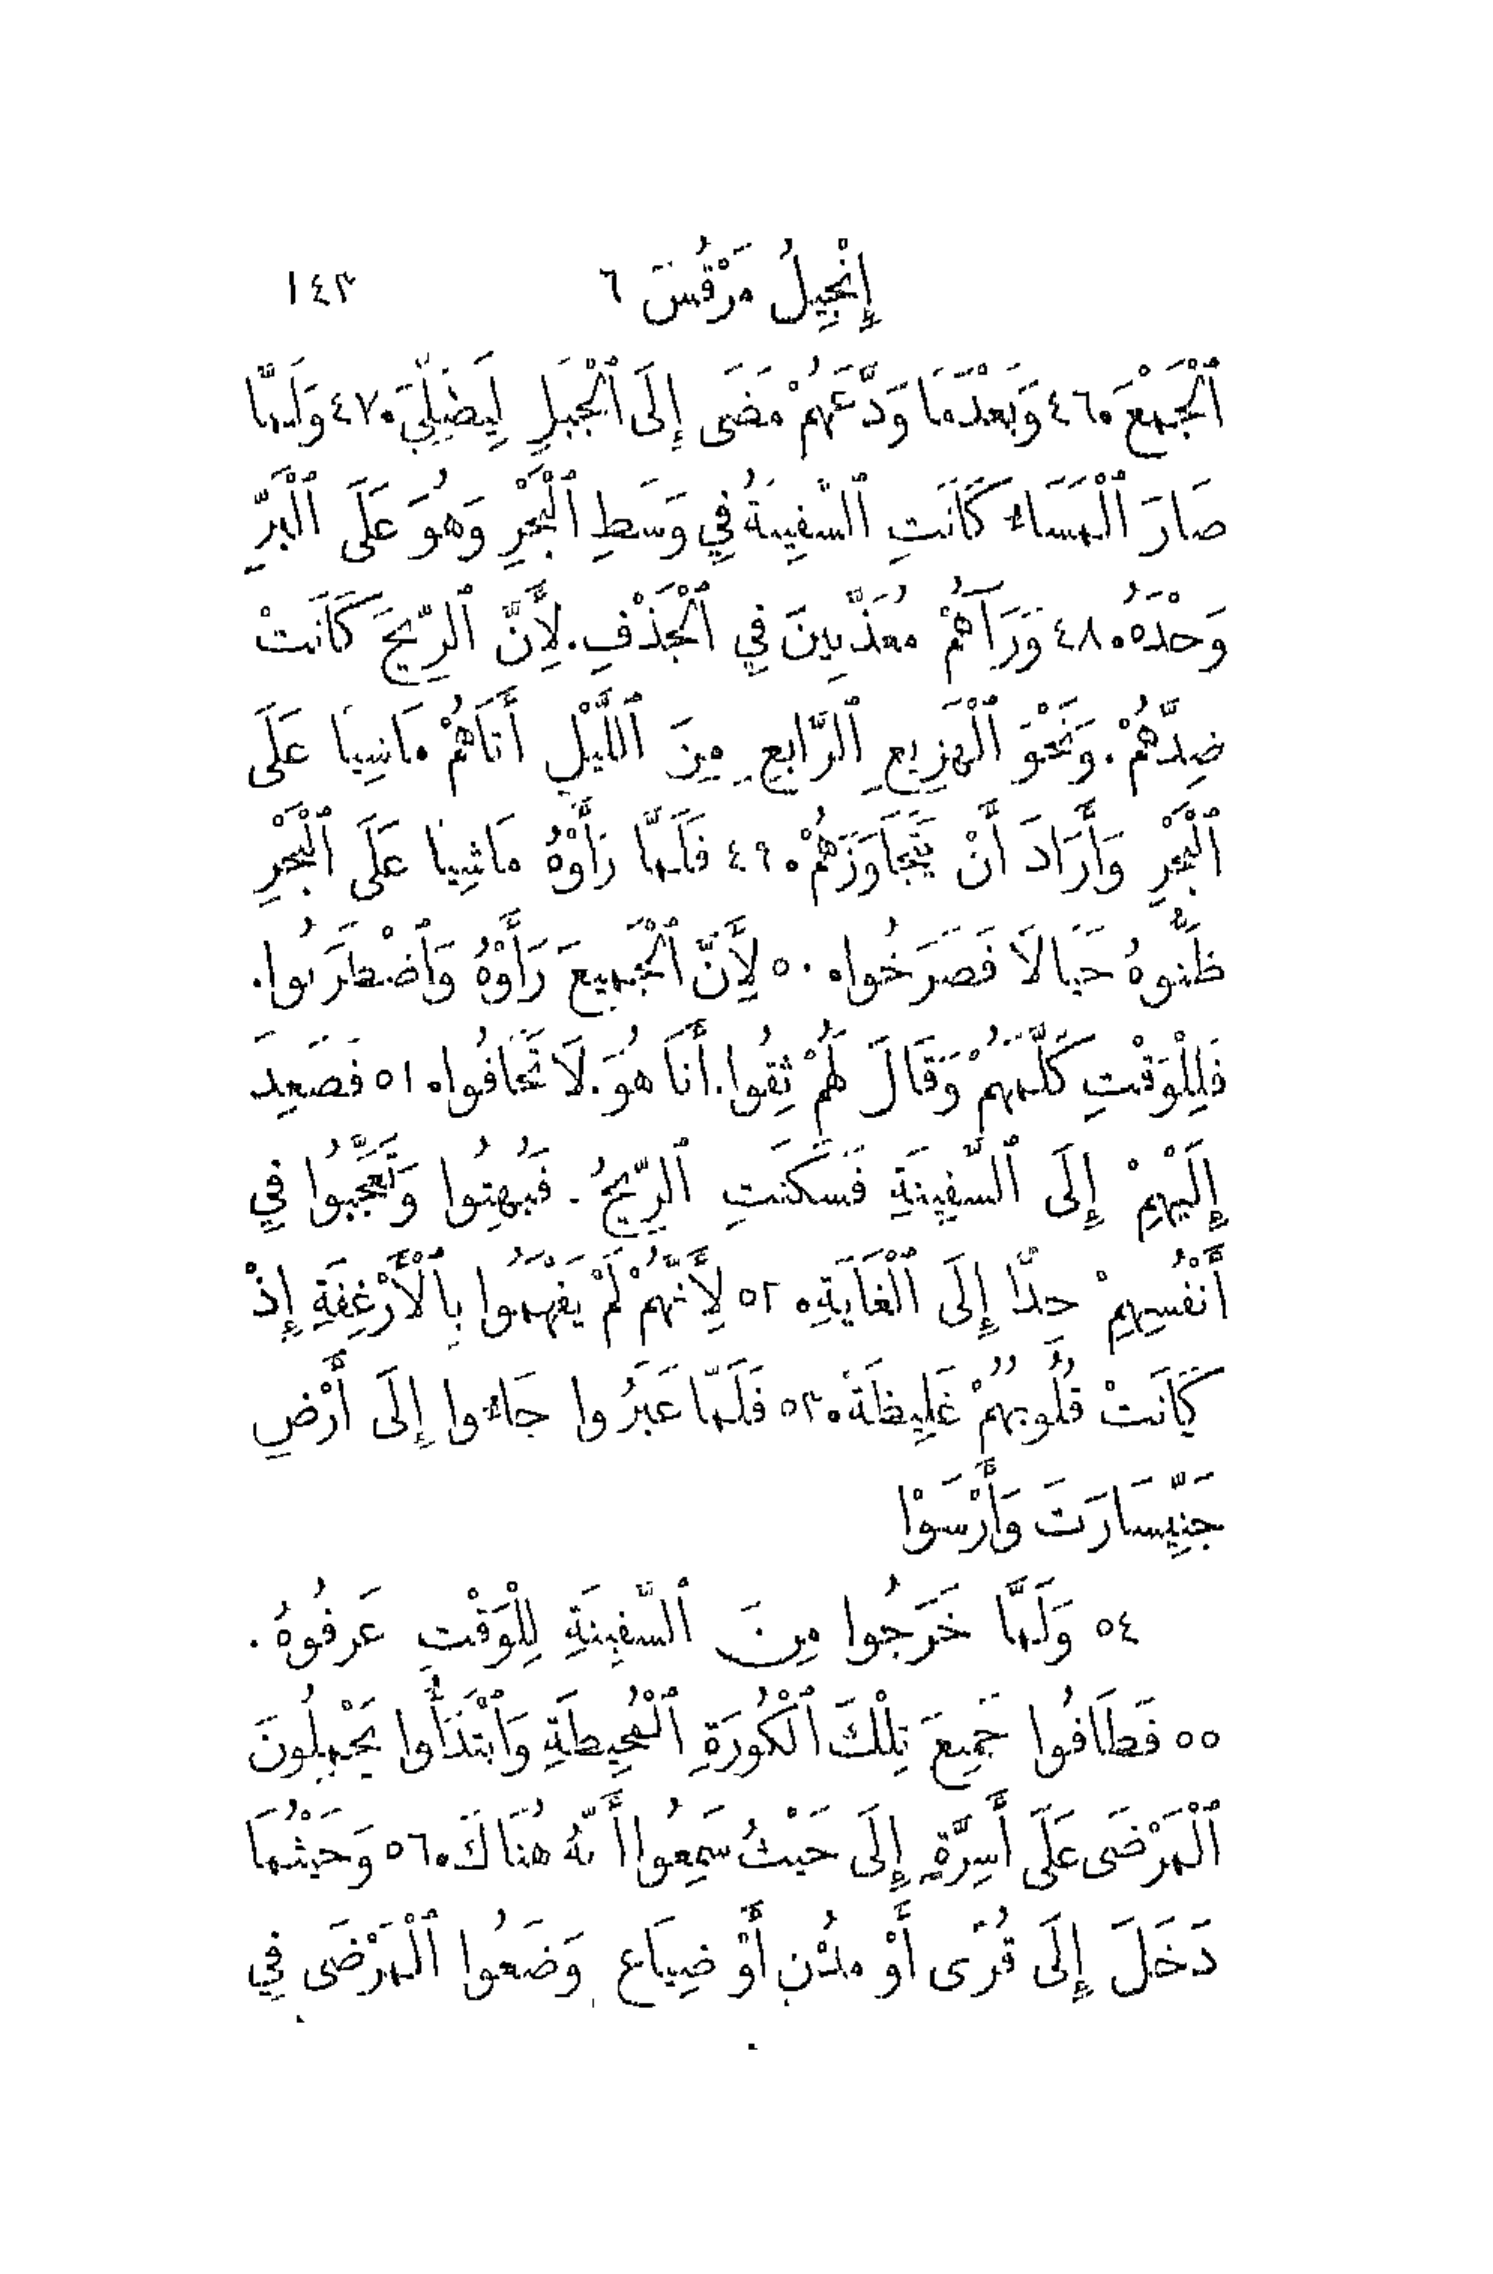 إِنْجِيلُ مَرْقُسَ ٦ ١٤٣
ٱلْجَمْعَ. ٤٦ وَبَعْدَمَا وَدَّعَهُمْ مَضَى إِلَى ٱلْجَبَلِ لِيُصَلِّيَ. ٤٧ وَلَمَّا
صَارَ ٱلْمَسَاءُ كَانَتِ ٱلسَّفِينَةُ فِي وَسَطِ ٱلْبَحْرِ وَهُوَ عَلَى ٱلْبَرِّ
وَحْدَهُ. ٤٨ وَرَآهُمْ مُعَذَّبِينَ فِي ٱلْجَذْفِ. لِأَنَّ ٱلرِّيحَ كَانَتْ
ضِدَّهُمْ. وَنَحْوَ ٱلْهَزِيعِ ٱلرَّابِعِ مِنَ ٱللَّيْلِ أَتَاهُمْ مَاشِيًا عَلَى
ٱلْبَحْرِ وَأَرَادَ أَنْ يَتَجَاوَزَهُمْ. ٤٩ فَلَمَّا رَأَوْهُ مَاشِيًا عَلَى ٱلْبَحْرِ
ظَنُّوهُ خَيَالًا فَصَرَخُوا. ٥٠ لِأَنَّ ٱلْجَمِيعَ رَأَوْهُ وَٱضْطَرَبُوا.
فَلِلْوَقْتِ كَلَّمَهُمْ وَقَالَ لَهُمْ ثِقُوا. أَنَا هُوَ. لَا تَخَافُوا. ٥١ فَصَعِدَ
إِلَيْهِمْ إِلَى ٱلسَّفِينَةِ فَسَكَنَتِ ٱلرِّيحُ. فَبُهِتُوا وَتَعَجَّبُوا فِي
أَنْفُسِهِمْ جِدًّا إِلَى ٱلْغَايَةِ. ٥٢ لِأَنَّهُمْ لَمْ يَفْهَمُوا بِٱلْأَرْغِفَةِ إِذْ
كَانَتْ قُلُوبُهُمْ غَلِيظَةً. ٥٣ فَلَمَّا عَبَرُوا جَاءُوا إِلَى أَرْضِ
جَنِّيسَارَتَ وَأَرْسَوْا
٥٤ وَلَمَّا خَرَجُوا مِنَ ٱلسَّفِينَةِ لِلْوَقْتِ عَرَفُوهُ.
٥٥ فَطَافُوا جَمِيعَ تِلْكَ ٱلْكُورَةِ ٱلْمُحِيطَةِ وَٱبْتَدَأُوا يَحْمِلُونَ
ٱلْمَرْضَى عَلَى أَسِرَّةٍ إِلَى حَيْثُ سَمِعُوا أَنَّهُ هُنَاكَ. ٥٦ وَحَيْثُمَا
دَخَلَ إِلَى قُرًى أَوْ مُدُنٍ أَوْ ضِيَاعٍ وَضَعُوا ٱلْمَرْضَى فِي